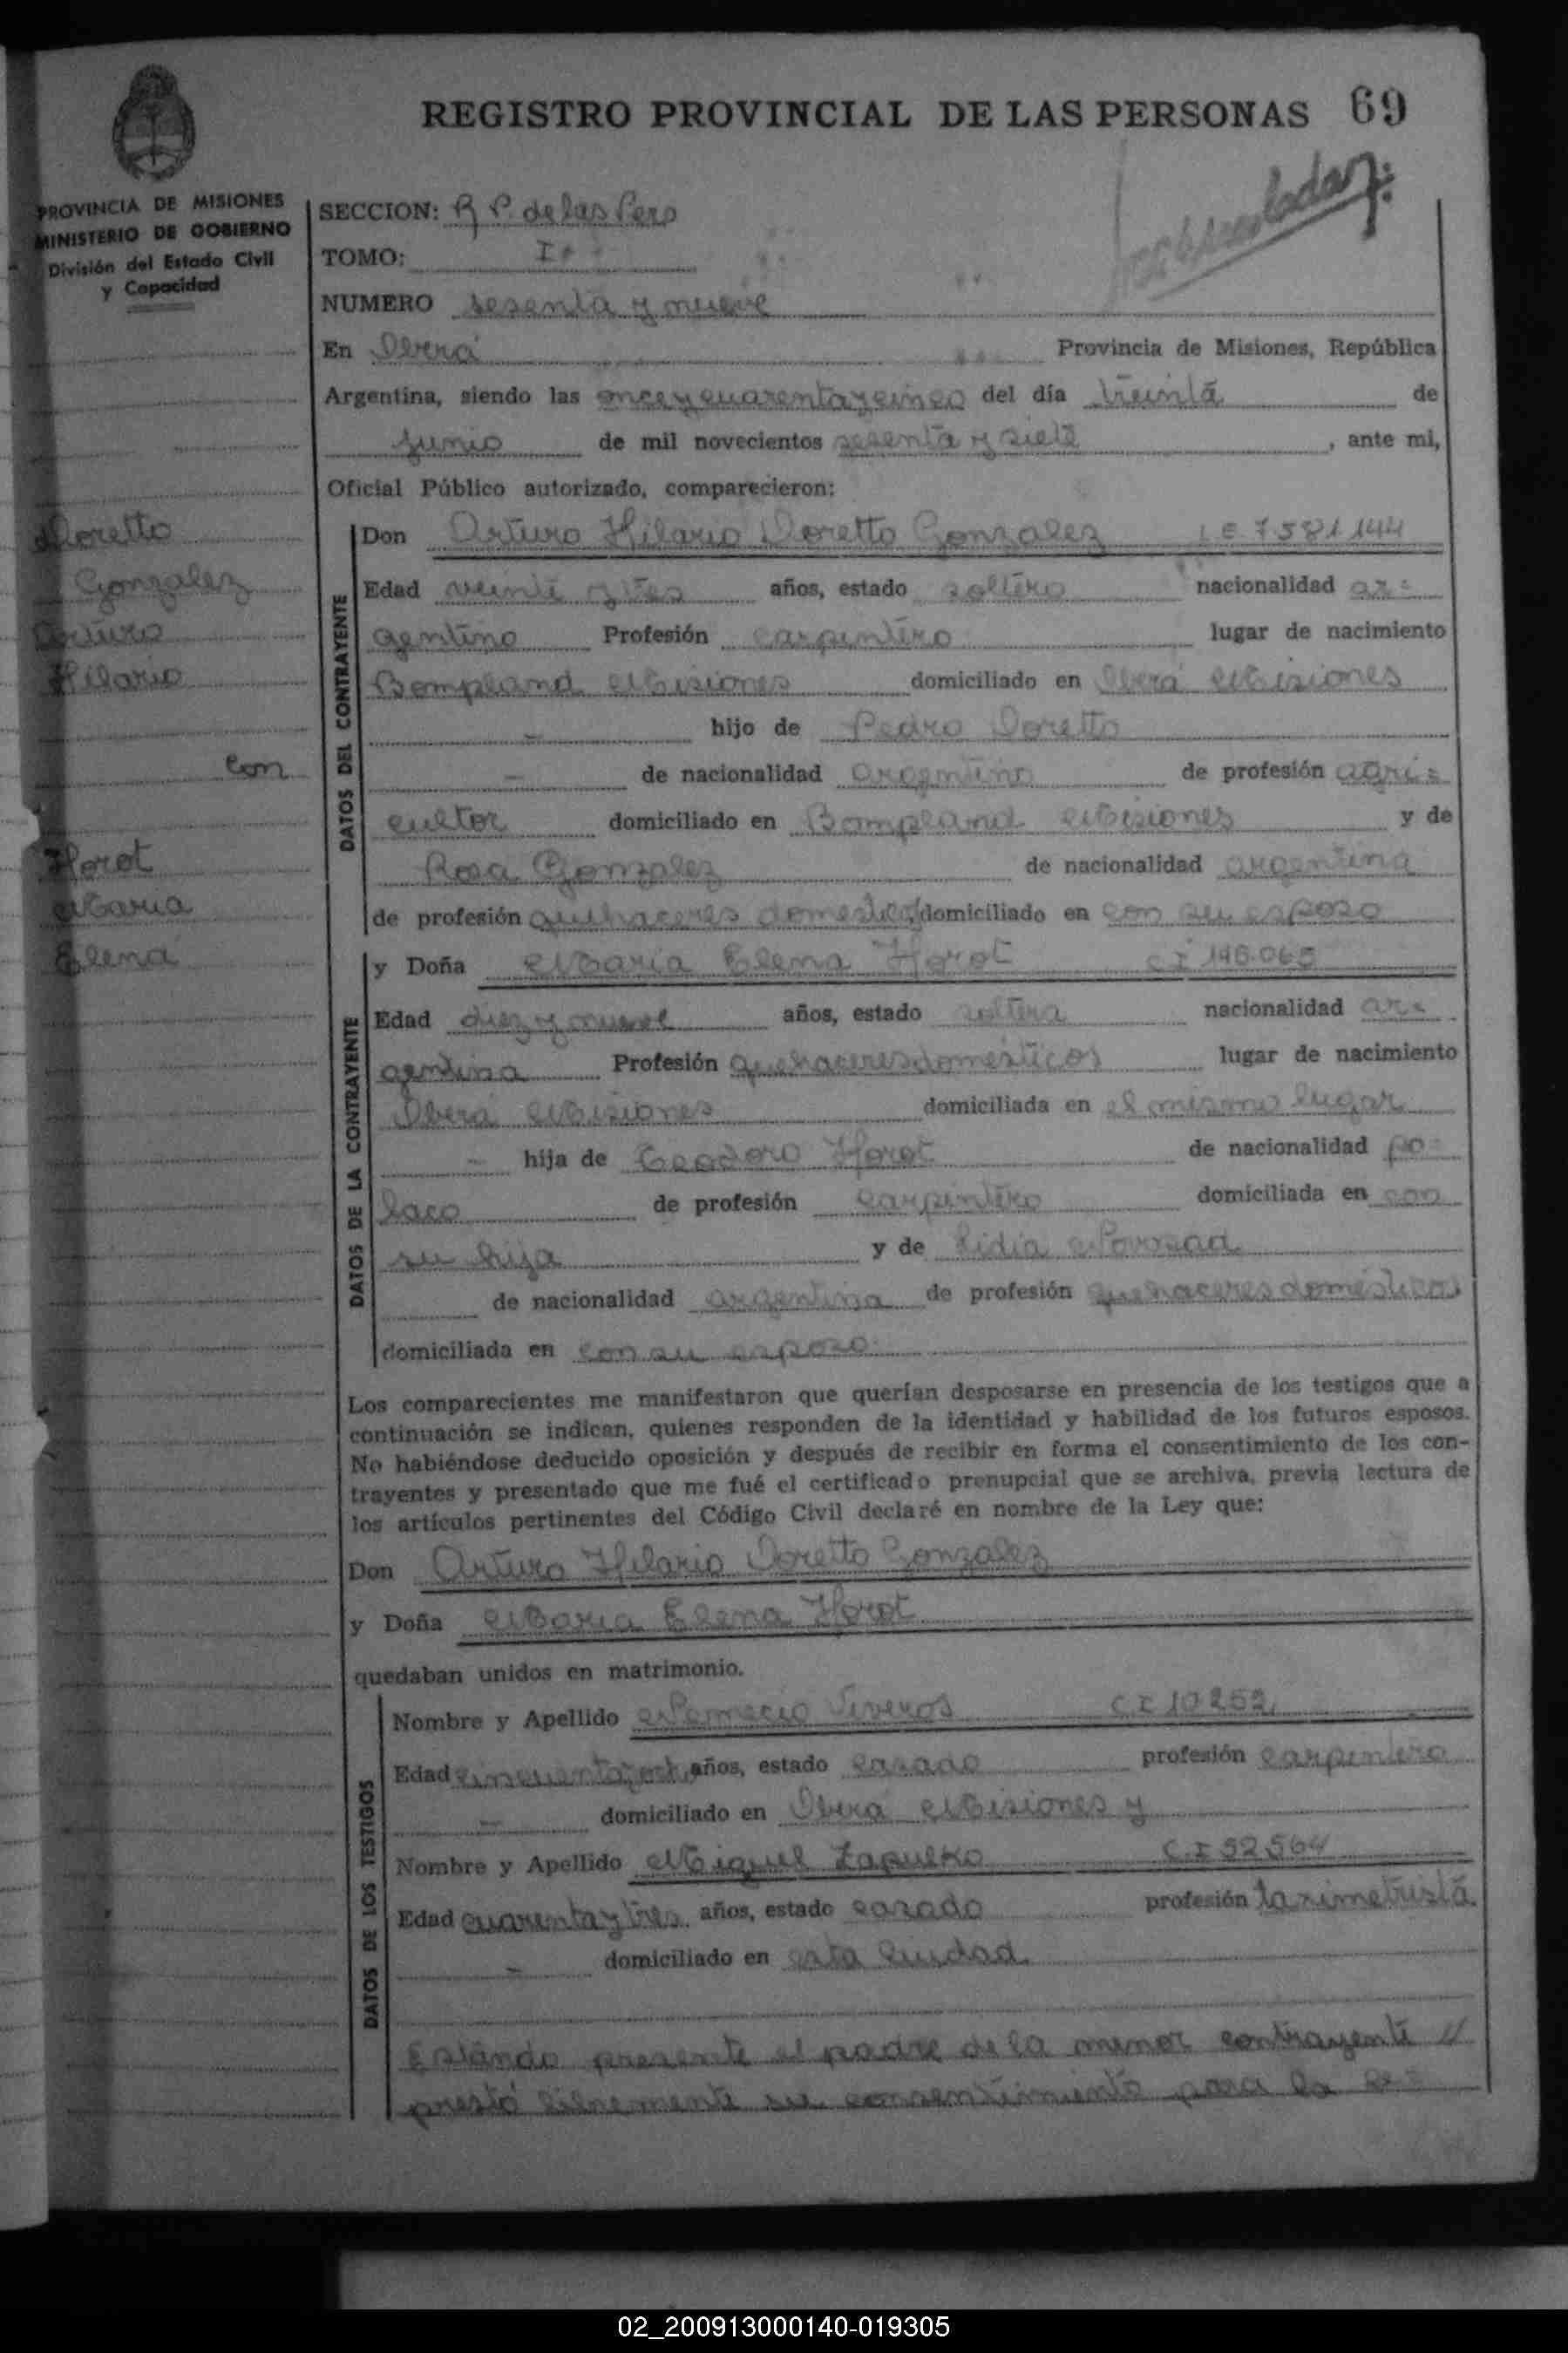 REGISTRO PROVINCIAL DE LAS PERSONAS 69
PROVINCIA DE MISIONES
MINISTERIO DE GOBIERNO
División del Estado Civil
y Capacidad
SECCION: R P. de las Pers
TOMO: I
NUMERO sesenta y nueve
En Oberá Provincia de Misiones, República
Argentina, siendo las once y cuarenta y cinco del día treinta de
junio de mil novecientos sesenta y siete, ante mi,
Oficial Público autorizado, comparecieron:
Doretto
Gonzalez
Arturo
Hilario
con
Horot
Maria
Elena
DATOS DEL CONTRAYENTE
Don Arturo Hilario Doretto Gonzalez LE 7581144
Edad veinte y tres años, estado soltero nacionalidad ar=
gentino Profesión carpintero lugar de nacimiento
Bompland Misiones domiciliado en Oberá Misiones
- hijo de Pedro Doretto
- de nacionalidad argentino de profesión agri=
cultor domiciliado en Bompland Misiones y de
Rosa Gonzalez de nacionalidad argentina
de profesión quehaceres domesticos domiciliado en con su esposo
DATOS DE LA CONTRAYENTE
y Doña Maria Elena Horot CI 146.065
Edad diez y nueve años, estado soltera nacionalidad ar=
gentina Profesión quehaceres domésticos lugar de nacimiento
Oberá Misiones domiciliada en el mismo lugar
- hija de Teodoro Horot de nacionalidad po=
laco de profesión carpintero domiciliada en con
su hija y de Lidia
de nacionalidad argentina de profesión quehaceres domésticos
domiciliada en con su esposo
Los comparecientes me manifestaron que querían desposarse en presencia de los testigos que a
continuación se indican, quienes responden de la identidad y habilidad de los futuros esposos.
No habiéndose deducido oposición y después de recibir en forma el consentimiento de los con-
trayentes y presentado que me fué el certificado prenupcial que se archiva, previa lectura de
los artículos pertinentes del Código Civil declaré en nombre de la Ley que:
Don Arturo Hilario Doretto Gonzalez
y Doña Maria Elena Horot
quedaban unidos en matrimonio.
DATOS DE LOS TESTIGOS
Nombre y Apellido Nemecio Viveros C I 10252
Edad cincuenta y och años, estado casado profesión carpintero
- domiciliado en Oberá Misiones y
Nombre y Apellido Miguel Zapulko C.I 92564
Edad cuarenta y tres años, estado casado profesión taximetrista
- domiciliado en esta ciudad
Estando presente el padre de la menor contrayente //
prestó libremente su consentimiento para la ce=
02_200913000140-019305